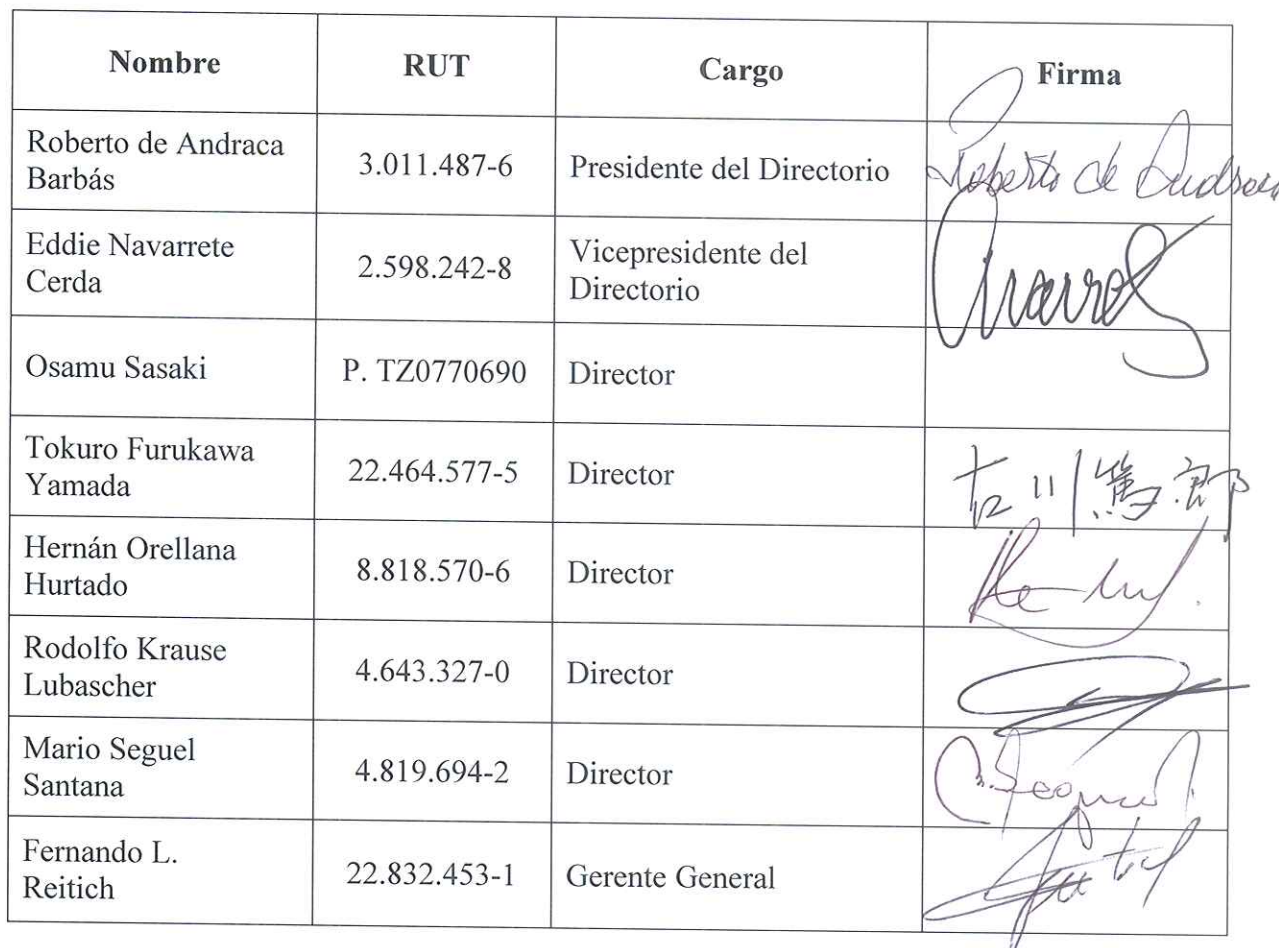 Nombre RUT Cargo Firma
Roberto de Andraca
Barbás
3.011.487-6
Presidente del Directorio
Roberto de Andraca
Eddie Navarrete
Cerda
2.598.242-8
Vicepresidente del
Directorio
Osamu Sasaki
P. TZ0770690
Director
Tokuro Furukawa
Yamada
22.464.577-5
Director
古川篤郎
Hernán Orellana
Hurtado
8.818.570-6
Director
Rodolfo Krause
Lubascher
4.643.327-0
Director
Mario Seguel
Santana
4.819.694-2
Director
Fernando L.
Reitich
22.832.453-1
Gerente General